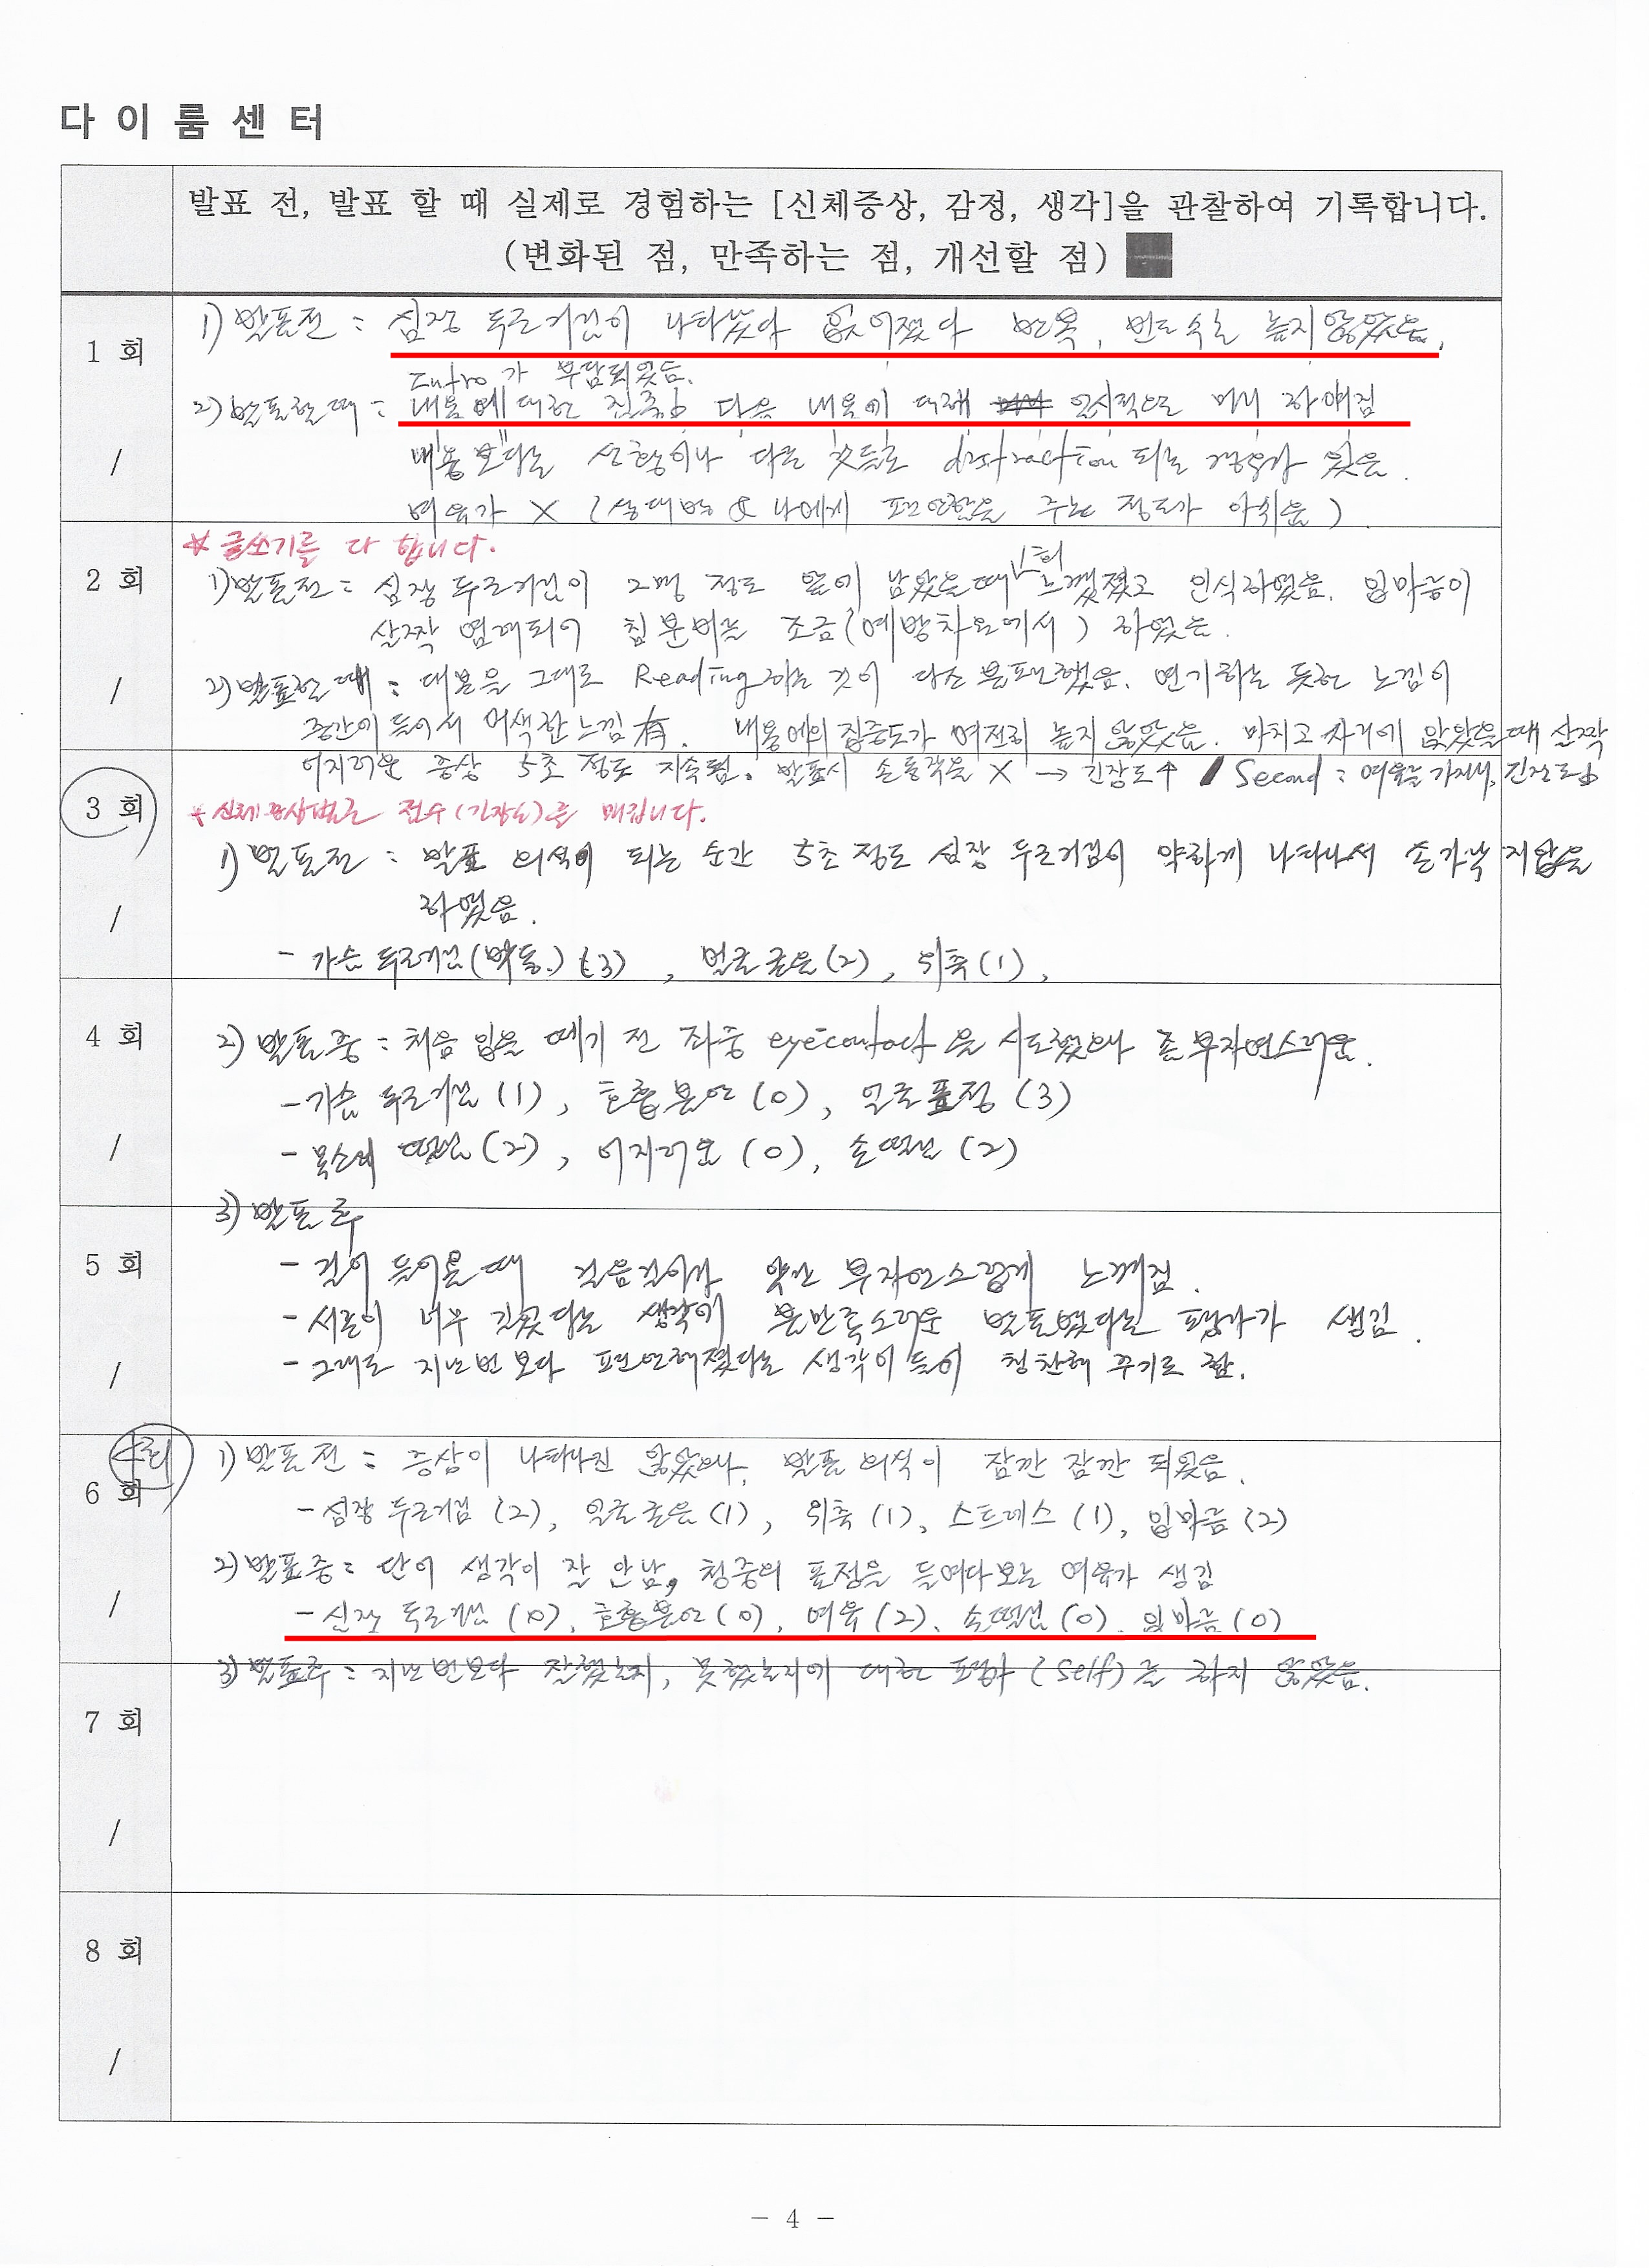 다이룸센터
발표 전, 발표 할 때 실제로 경험하는 [신체증상, 감정, 생각]을 관찰하여 기록합니다.
(변화된 점, 만족하는 점, 개선할 점)
1 회
1) 발표전 : 심장 두근거림이 나타났다 없어졌다 반복, 빈도수는 높지 않았음.
Intro가 부담되었음.
2) 발표할때 : 내용에 대한 집중↓ 다음 내용에 대해 일시적으로 머리 하얘짐
/
내용보다는 상황이나 다른 것들로 distraction 되는 경우가 있음.
여유가 X (상대방 & 나에게 편안함을 주는 정도가 아쉬움)
* 글쓰기를 다 합니다.
2 회
1) 발표전 : 심장 두근거림이 2명 정도 앞에 남았을때 1회 느껴졌고 인식하였음. 입마름이
살짝 염려되어 침분비는 조금(예방차원에서) 하였음.
/
2) 발표할 때 : 대본을 그대로 Reading하는 것이 다소 불편했음. 연기하는 듯한 느낌이
중간에 들어서 어색한 느낌 有. 내용에의 집중도가 여전히 높지 않았음. 마치고 자리에 앉았을때 살짝
어지러운 증상 5초 정도 지속됨. 발표시 손동작을 X → 긴장도↑ / Second : 여유를 가져서, 긴장도↓
3 회
* 신체증상별로 점수(긴장도)를 매깁니다.
1) 발표전 : 발표 의식이 되는 순간 5초 정도 심장 두근거림이 약하게 나타나서 손가락 지압을
하였음.
/
- 가슴 두근거림(박동) (3), 얼굴 굳음(2), 위축(1),
4 회
2) 발표중 : 처음 입을 떼기 전 좌중 eyecontact을 시도했으나 좀 부자연스러움.
- 가슴 두근거림 (1), 호흡불안 (0), 얼굴표정 (3)
/
- 목소리 떨림 (2), 어지러움 (0), 손떨림 (2)
3) 발표후
5 회
- 걸어 들어올때 걸음걸이가 약간 부자연스럽게 느껴짐.
- 서론이 너무 길었다는 생각에 불만족스러운 발표였다는 평가가 생김.
/
- 그래도 지난번 보다 편안해졌다는 생각이 들어 칭찬해 주기로 함.
4회
6 회
1) 발표전 : 증상이 나타나진 않았으나, 발표 의식이 잠깐 잠깐 되었음.
- 심장 두근거림 (2), 얼굴굳음 (1), 위축 (1), 스트레스 (1), 입마름 (2)
2) 발표중 : 단어 생각이 잘 안남, 청중의 표정을 들여다보는 여유가 생김
/
- 심장 두근거림 (0), 호흡불안 (0), 여유 (2), 손떨림 (0), 입마름 (0)
3) 발표후 : 지난번보다 잘했는지, 못했는지에 대한 평가 (self)를 하지 않았음.
7 회
/
8 회
/
- 4 -